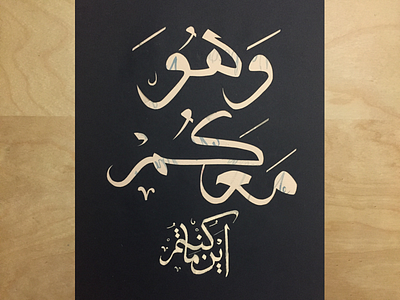 وَهُوَ
مَعَكُمْ
اَيْنَ مَا كُنْتُمْ